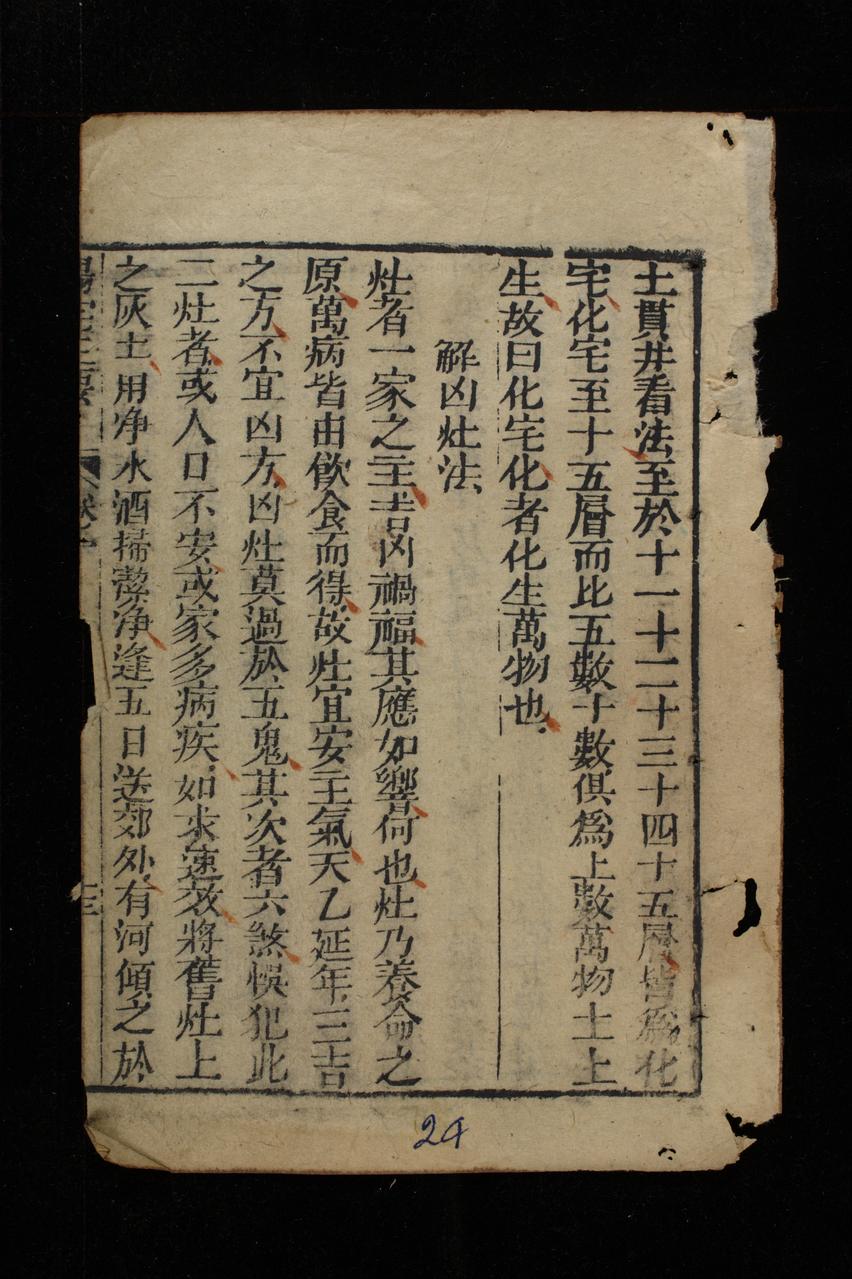 土貫井看法至於十一十二十三十四十五層皆爲化
宅化宅至十五層而比五數十數俱爲上數萬物土上
生故曰化宅化者化生萬物也
解凶灶法
灶者一家之主吉凶禍福其應如響何也灶乃養命之
原萬病皆由飲食而得故灶宜安主氣天乙延年三吉
之方不宜凶方凶灶莫過於五鬼其次者六煞悞犯此
二灶者或人口不安或家多病疾如求速效將舊灶上
之灰土用净水洒掃潔净逢五日送郊外有河傾之於
陽宅三要 卷一 十三
24